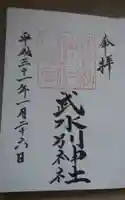 奉拝
武水別神社
平成三十一年一月二十六日